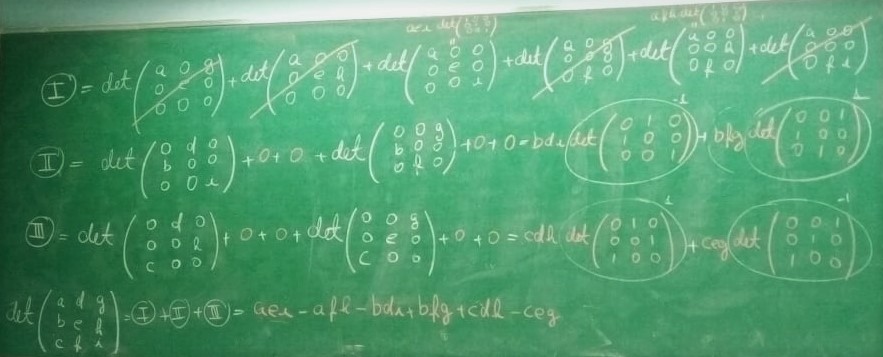 aei det( afh det(
Ⓘ = det(a 0 g / 0 e 0 / 0 0 0) + det(a 0 0 / 0 e h / 0 0 0) + det(a 0 0 / 0 e 0 / 0 0 i) + det(a 0 g / 0 0 0 / 0 f 0) + det(a 0 0 / 0 0 h / 0 f 0) + det(a 0 0 / 0 0 0 / 0 f i)
Ⅱ = det(0 d 0 / b 0 0 / 0 0 i) + 0 + 0 + det(0 0 g / b 0 0 / 0 f 0) + 0 + 0 = bdi det(0 1 0 / 1 0 0 / 0 0 1) -1 + bfg det(0 0 1 / 1 0 0 / 0 1 0) 1
Ⅲ = det(0 d 0 / 0 0 h / c 0 0) + 0 + 0 + det(0 0 g / 0 e 0 / c 0 0) + 0 + 0 = cdh det(0 1 0 / 0 0 1 / 1 0 0) 1 + ceg det(0 0 1 / 0 1 0 / 1 0 0) -1
det(a d g / b e h / c f i) = Ⓘ + Ⅱ + Ⅲ = aei - afh - bdi + bfg + cdh - ceg